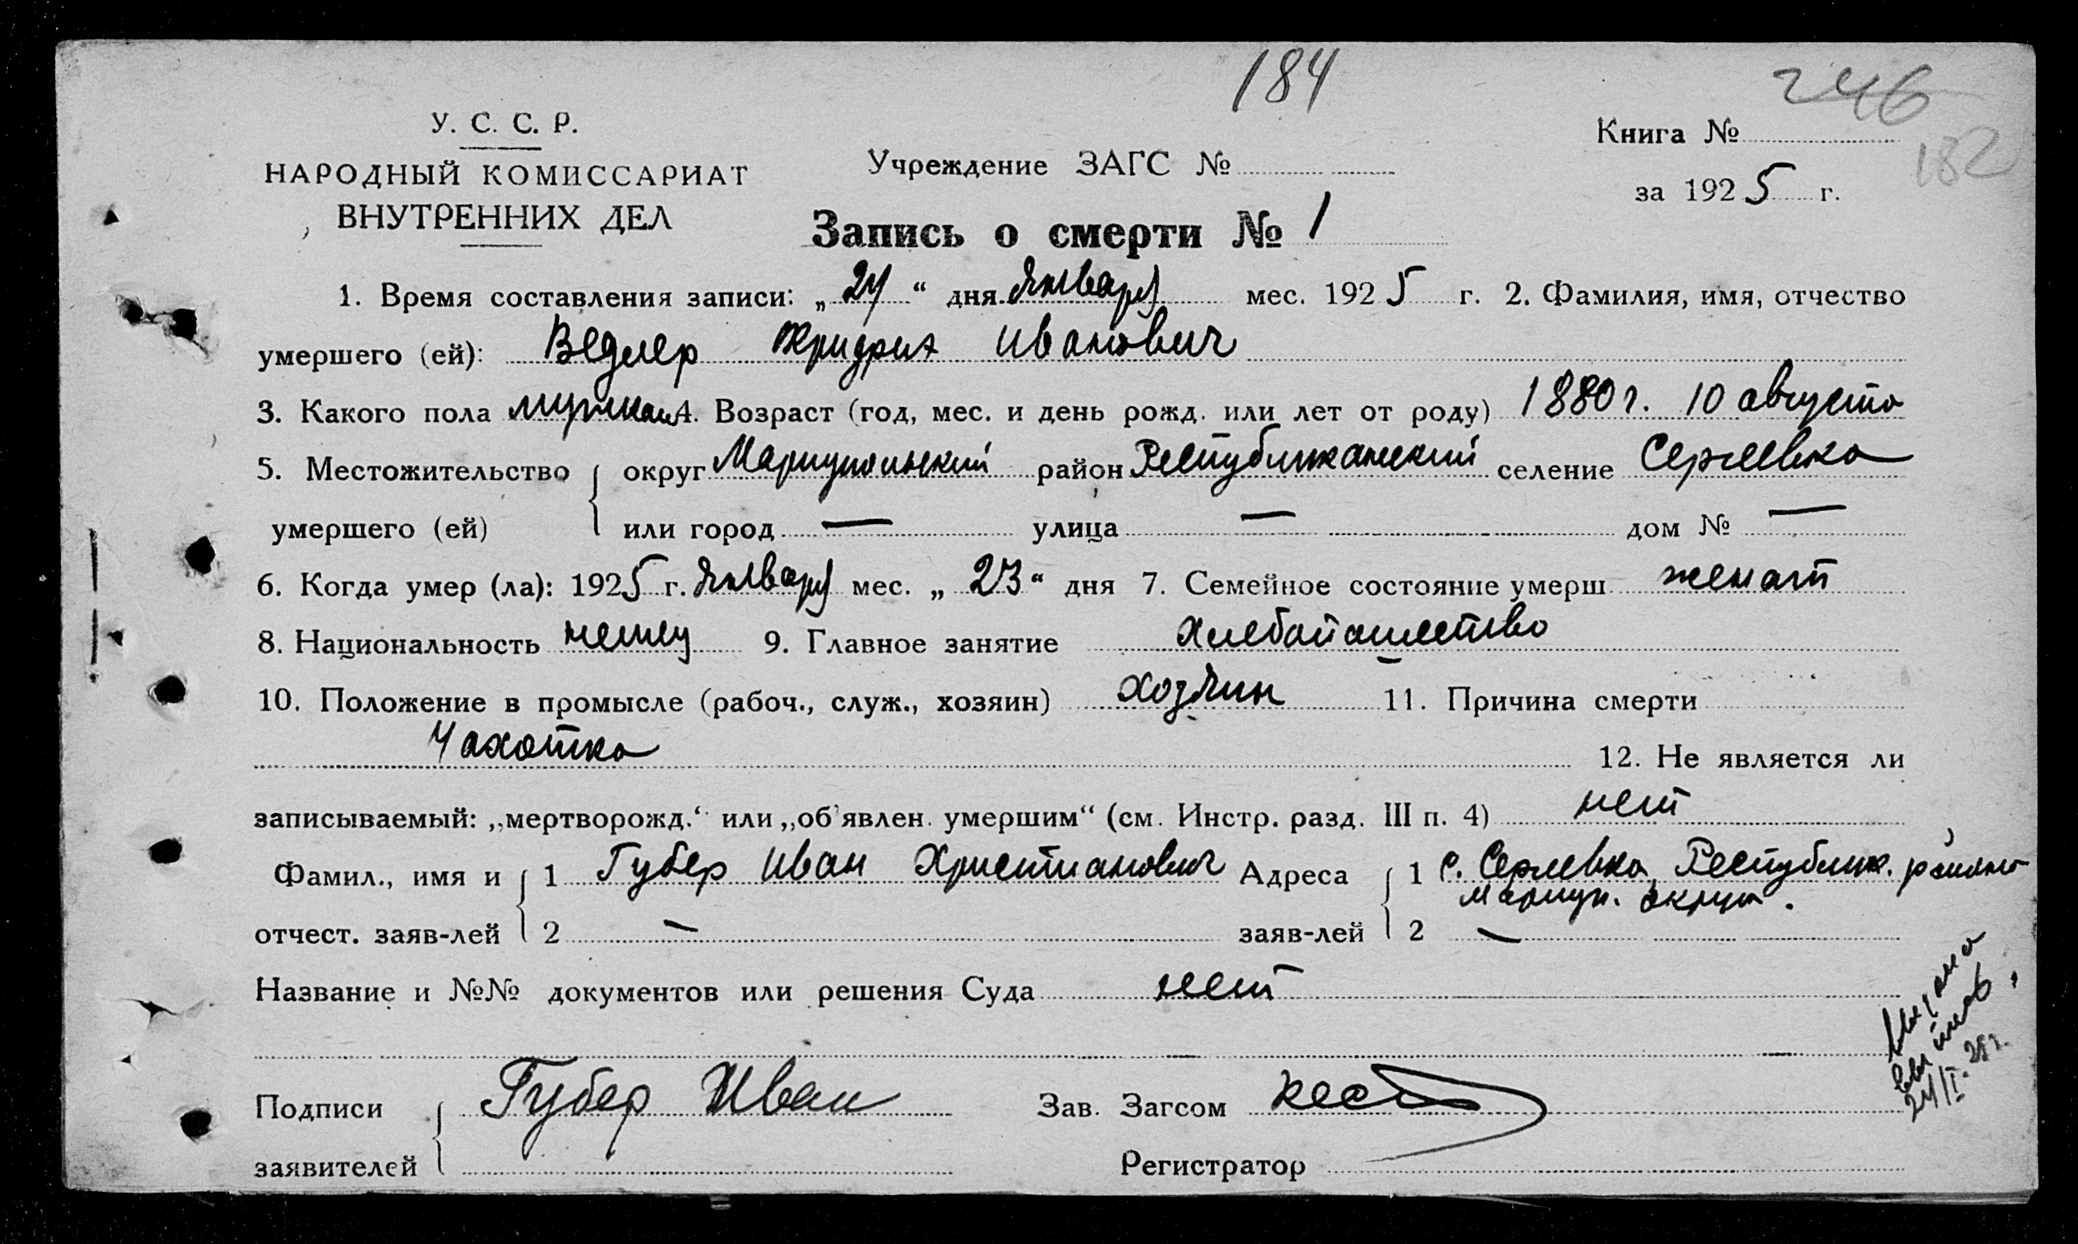 184
246
У. С. С. Р.
Книга №
152
НАРОДНЫЙ КОМИССАРИАТ
ВНУТРЕННИХ ДЕЛ
Учреждение ЗАГС №
за 1925 г.
Запись о смерти № 1
1. Время составления записи: „24“ дня Января мес. 1925 г. 2. Фамилия, имя, отчество
умершего (ей): Ведлер Фридрих Иванович
3. Какого пола мужская 4. Возраст (год, мес. и день рожд. или лет от роду) 1880 г. 10 августа
5. Местожительство округ Мариупольский район Республиканский селение Сергеевка
умершего (ей) или город — улица — дом № —
6. Когда умер (ла): 1925 г. Января мес. „23“ дня 7. Семейное состояние умерш. женат
8. Национальность немец 9. Главное занятие хлебопашество
10. Положение в промысле (рабоч., служ., хозяин) хозяин 11. Причина смерти
Чахотка
12. Не является ли
записываемый: „мертворожд.“ или „об'явлен. умершим“ (см. Инстр. разд. III п. 4) нет
Фамил., имя и 1 Губер Иван Христианович Адреса 1 с. Сергеевка Республик. района
Мариуп. округа.
отчест. заяв-лей 2 — заяв-лей 2 —
Название и №№ документов или решения Суда нет
Подписи Губер Иван Зав. Загсом
заявителей Регистратор
24/I